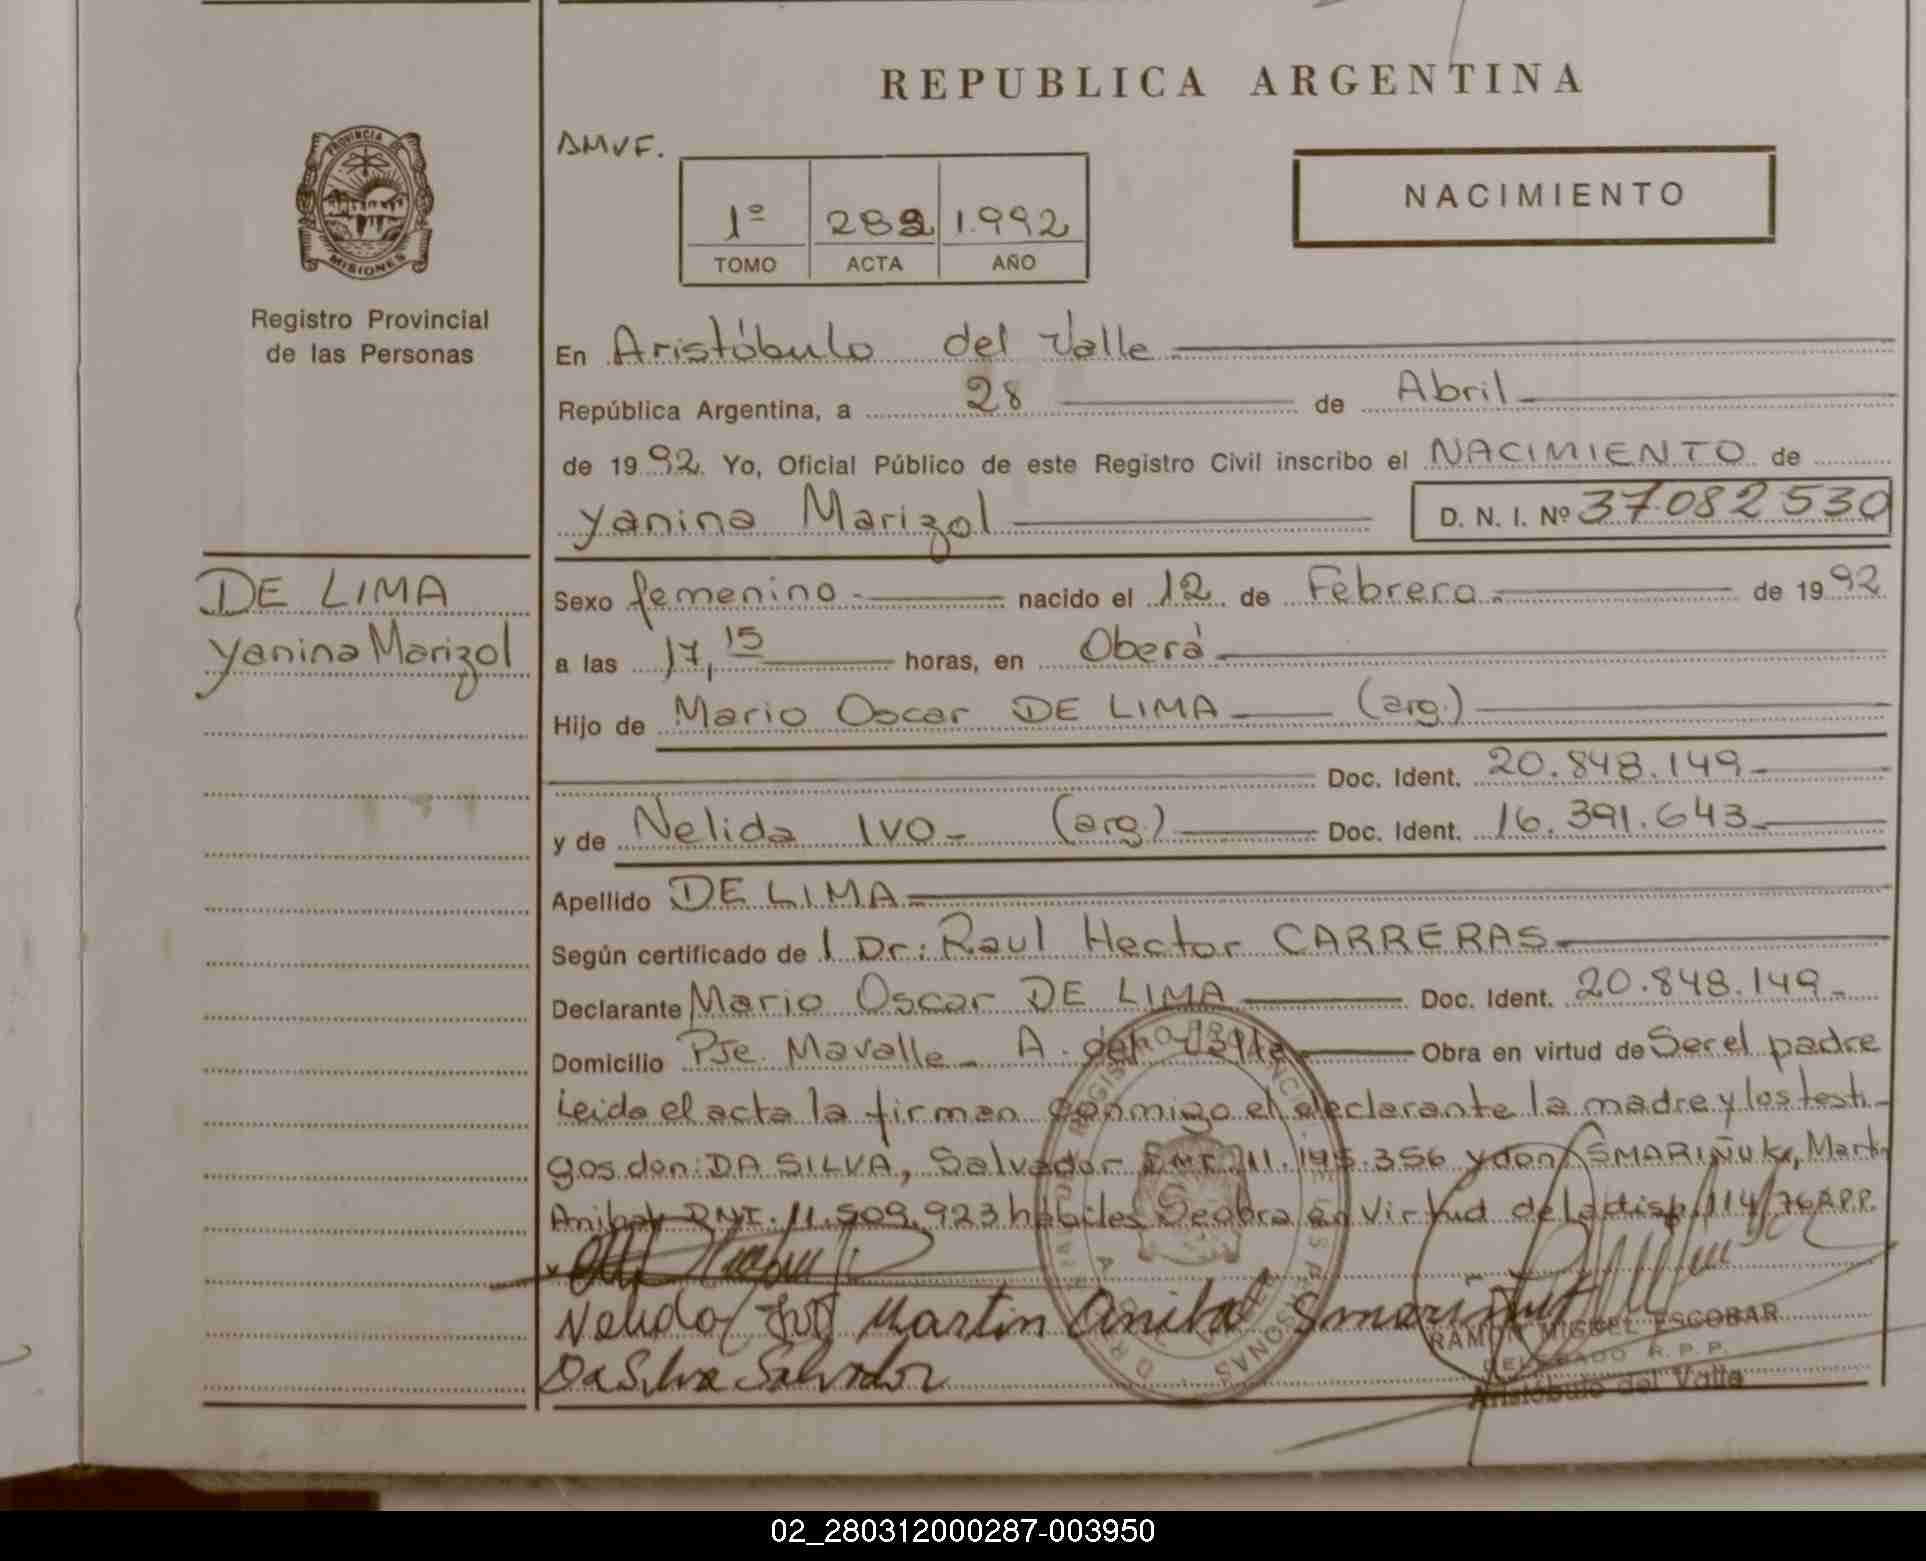 REPUBLICA ARGENTINA
PROVINCIA DE
MISIONES
Registro Provincial
de las Personas
AMVF.
1º 282 1.992
TOMO ACTA AÑO
NACIMIENTO
En Aristóbulo del Valle
República Argentina, a 28 de Abril
de 1992. Yo, Oficial Público de este Registro Civil inscribo el NACIMIENTO de
Yanina Marizol D. N. I. Nº 37.082530
DE LIMA
Yanina Marizol
Sexo femenino nacido el 12 de Febrero de 1992
a las 17,15 horas, en Oberá
Hijo de Mario Oscar DE LIMA (arg.)
Doc. Ident. 20.848.149
y de Nelida IVO (arg.) Doc. Ident. 16.391.643
Apellido DE LIMA
Según certificado de l Dr: Raul Hector CARRERAS
Declarante Mario Oscar DE LIMA Doc. Ident. 20.848.149
Domicilio Pje. Mavalle - A. del Obra en virtud de Ser el padre
Leida el acta la firman conmigo el declarante la madre y los testi-
gos don: DA SILVA, Salvador DNI. 11.145.356 y don SMARIÑUK, Martin
Anibal DNI. 11.509.923 habiles Se obra en virtud de la disp. 114/76 RPP.
Nelida Ivo Martin Anibal Smariñuk
Da Silva Salvador
RAMON MIGUEL ESCOBAR
DELEGADO R. P. P.
Aristóbulo del Valle
02_280312000287-003950